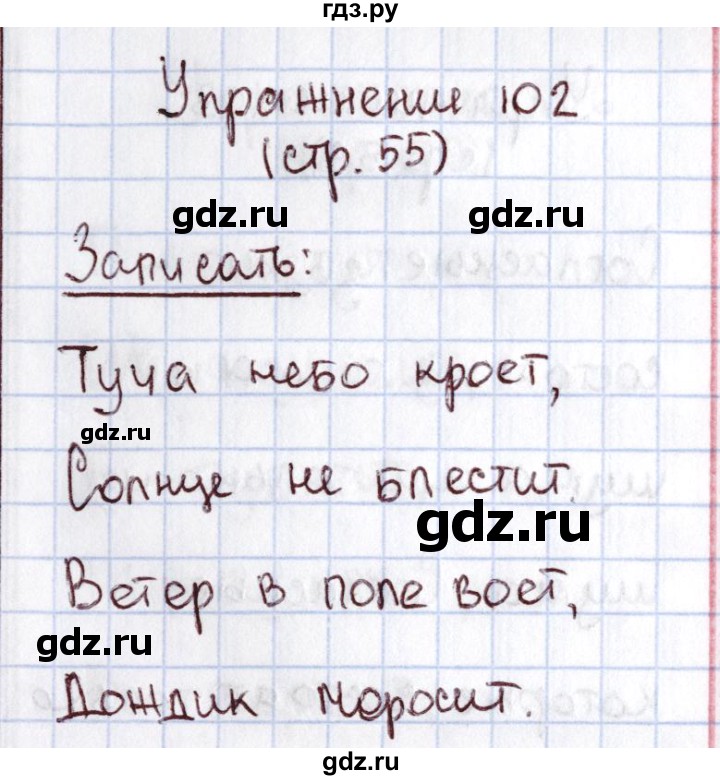 гдз.ру
Упражнении 102
(стр. 55)
gdz.ru gdz.ru
Записать:
Туча небо кроет,
gdz.ru
Солнце не блестит.
gdz.ru
Ветер в поле воет,
gdz.ru
Дождик моросит.
gdz.ru